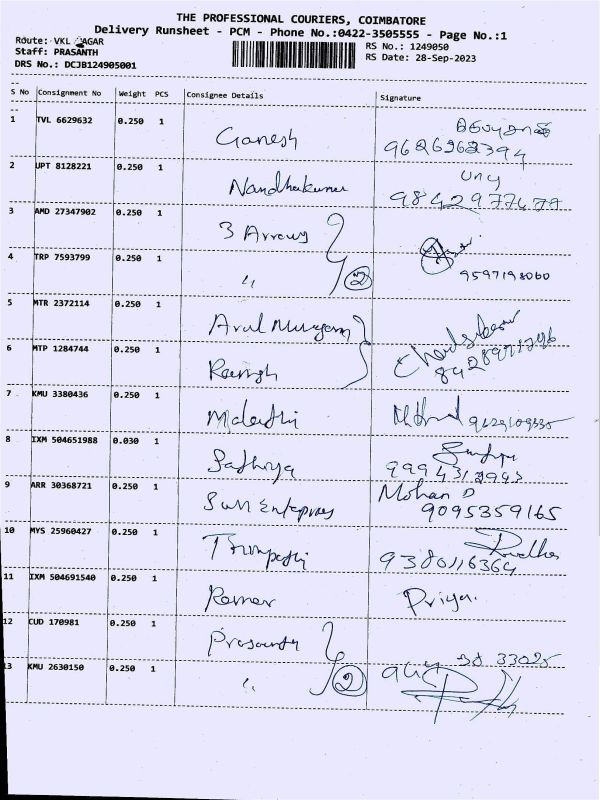 THE PROFESSIONAL COURIERS, COIMBATORE
Delivery Runsheet - PCM - Phone No.:0422-3505555 - Page No.:1
Route: VKL AGAR
RS No.: 1249050
Staff: PRASANTH
RS Date: 28-Sep-2023
DRS No.: DCJB124905001
S No Consignment No Weight PCS Consignee Details Signature
1 TVL 6629632 0.250 1 Ganesh
9626962394
2 UPT 8128221 0.250 1 Nandhakumar
3 AMD 27347902 0.250 1 3 Arrows
4 TRP 7593799 0.250 1 " 2 9597198060
5 MTR 2372114 0.250 1 Arul Murugan
6 MTP 1284744 0.250 1 Ramesh
7 KMU 3380436 0.250 1 Malathi
8 IXM 504651988 0.030 1 Sathiya
9 ARR 30368721 0.250 1 Sun Enterprises Mohan D
9095359165
10 MYS 25960427 0.250 1
9380116364
11 IXM 504691540 0.250 1 Raman Priya.
12 CUD 170981 0.250 1 Prasanth
13 KMU 2630150 0.250 1 " 2